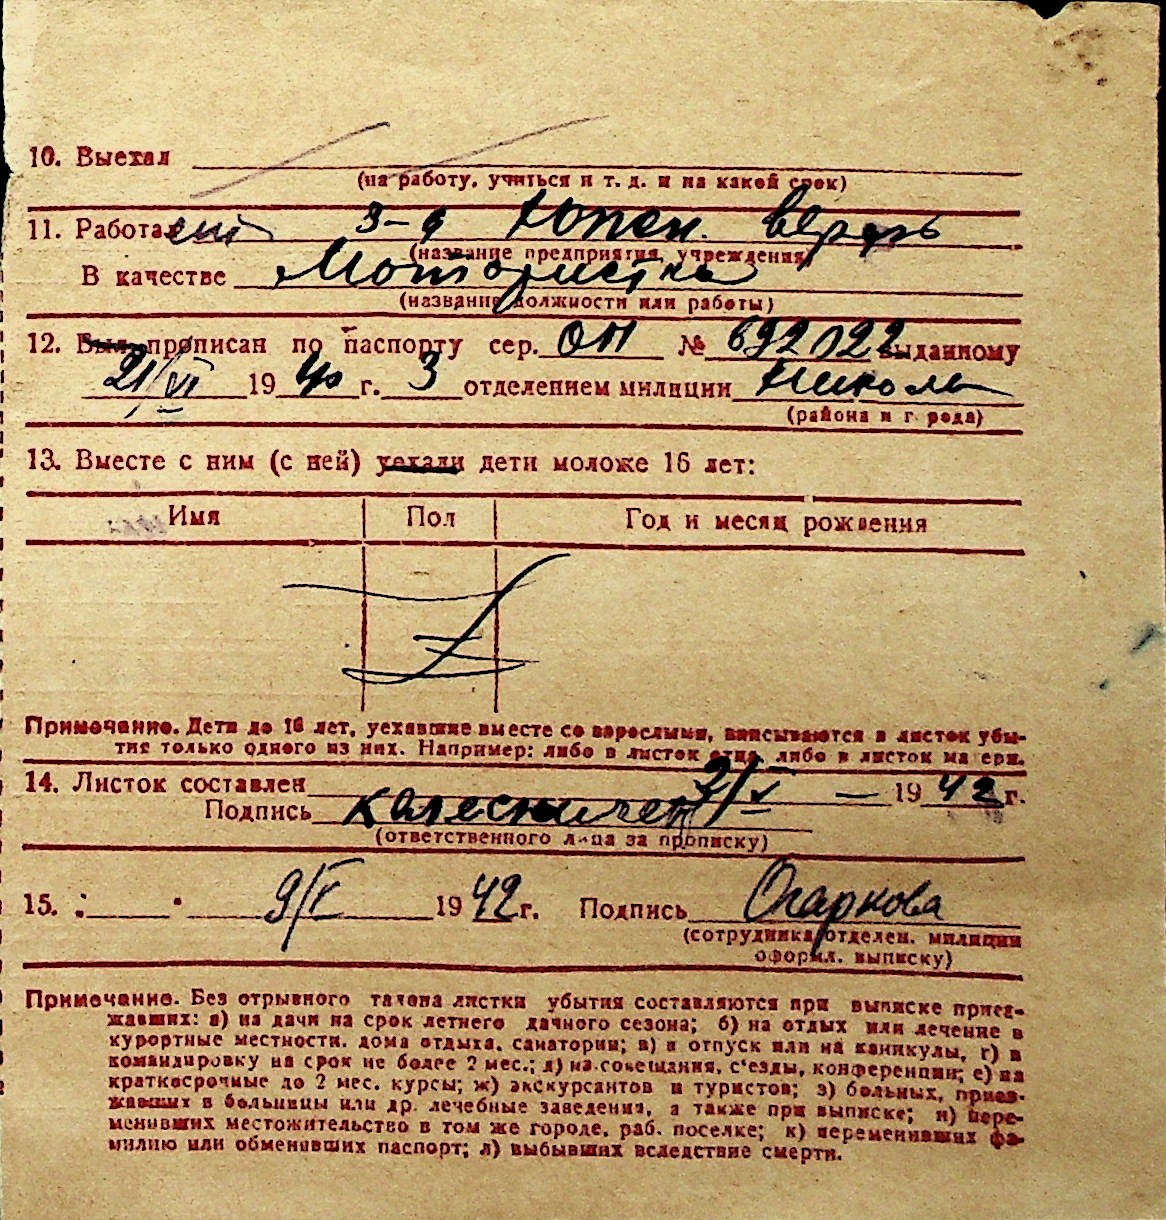 10. Выехал
(на работу, учиться и т. д. и на какой срок)
11. Работает з-д Копен. верфь
(название предприятия, учреждения)
В качестве Мотористка
(название должности или работы)
12. Был прописан по паспорту сер. ОН № 692022 выданному
21/VI 1940 г. 3 отделением милиции
(района и города)
13. Вместе с ним (с ней) уехали дети моложе 16 лет:
Имя Пол Год и месяц рождения
Примечание. Дети до 16 лет, уехавшие вместе со взрослыми, вписываются в листок убы-
тия только одного из них. Например: либо в листок отца, либо в листок матери.
14. Листок составлен 9/V — 1942 г.
Подпись
(ответственного лица за прописку)
15. 9/V 1942 г. Подпись Огаркова
(сотрудника отделен. милиции
оформ. выписку)
Примечание. Без отрывного талона листки убытия составляются при выписке приез-
жавших: а) на дачи на срок летнего дачного сезона; б) на отдых или лечение в
курортные местности, дома отдыха, санатории; в) в отпуск или на каникулы, г) в
командировку на срок не более 2 мес.; д) на совещания, с'езды, конференции; е) на
краткосрочные до 2 мес. курсы; ж) экскурсантов и туристов; з) больных, приез-
жавших в больницы или др. лечебные заведения, а также при выписке; и) пере-
менивших местожительство в том же городе, раб. поселке; к) переменивших фа-
милию или обменявших паспорт; л) выбывших вследствие смерти.